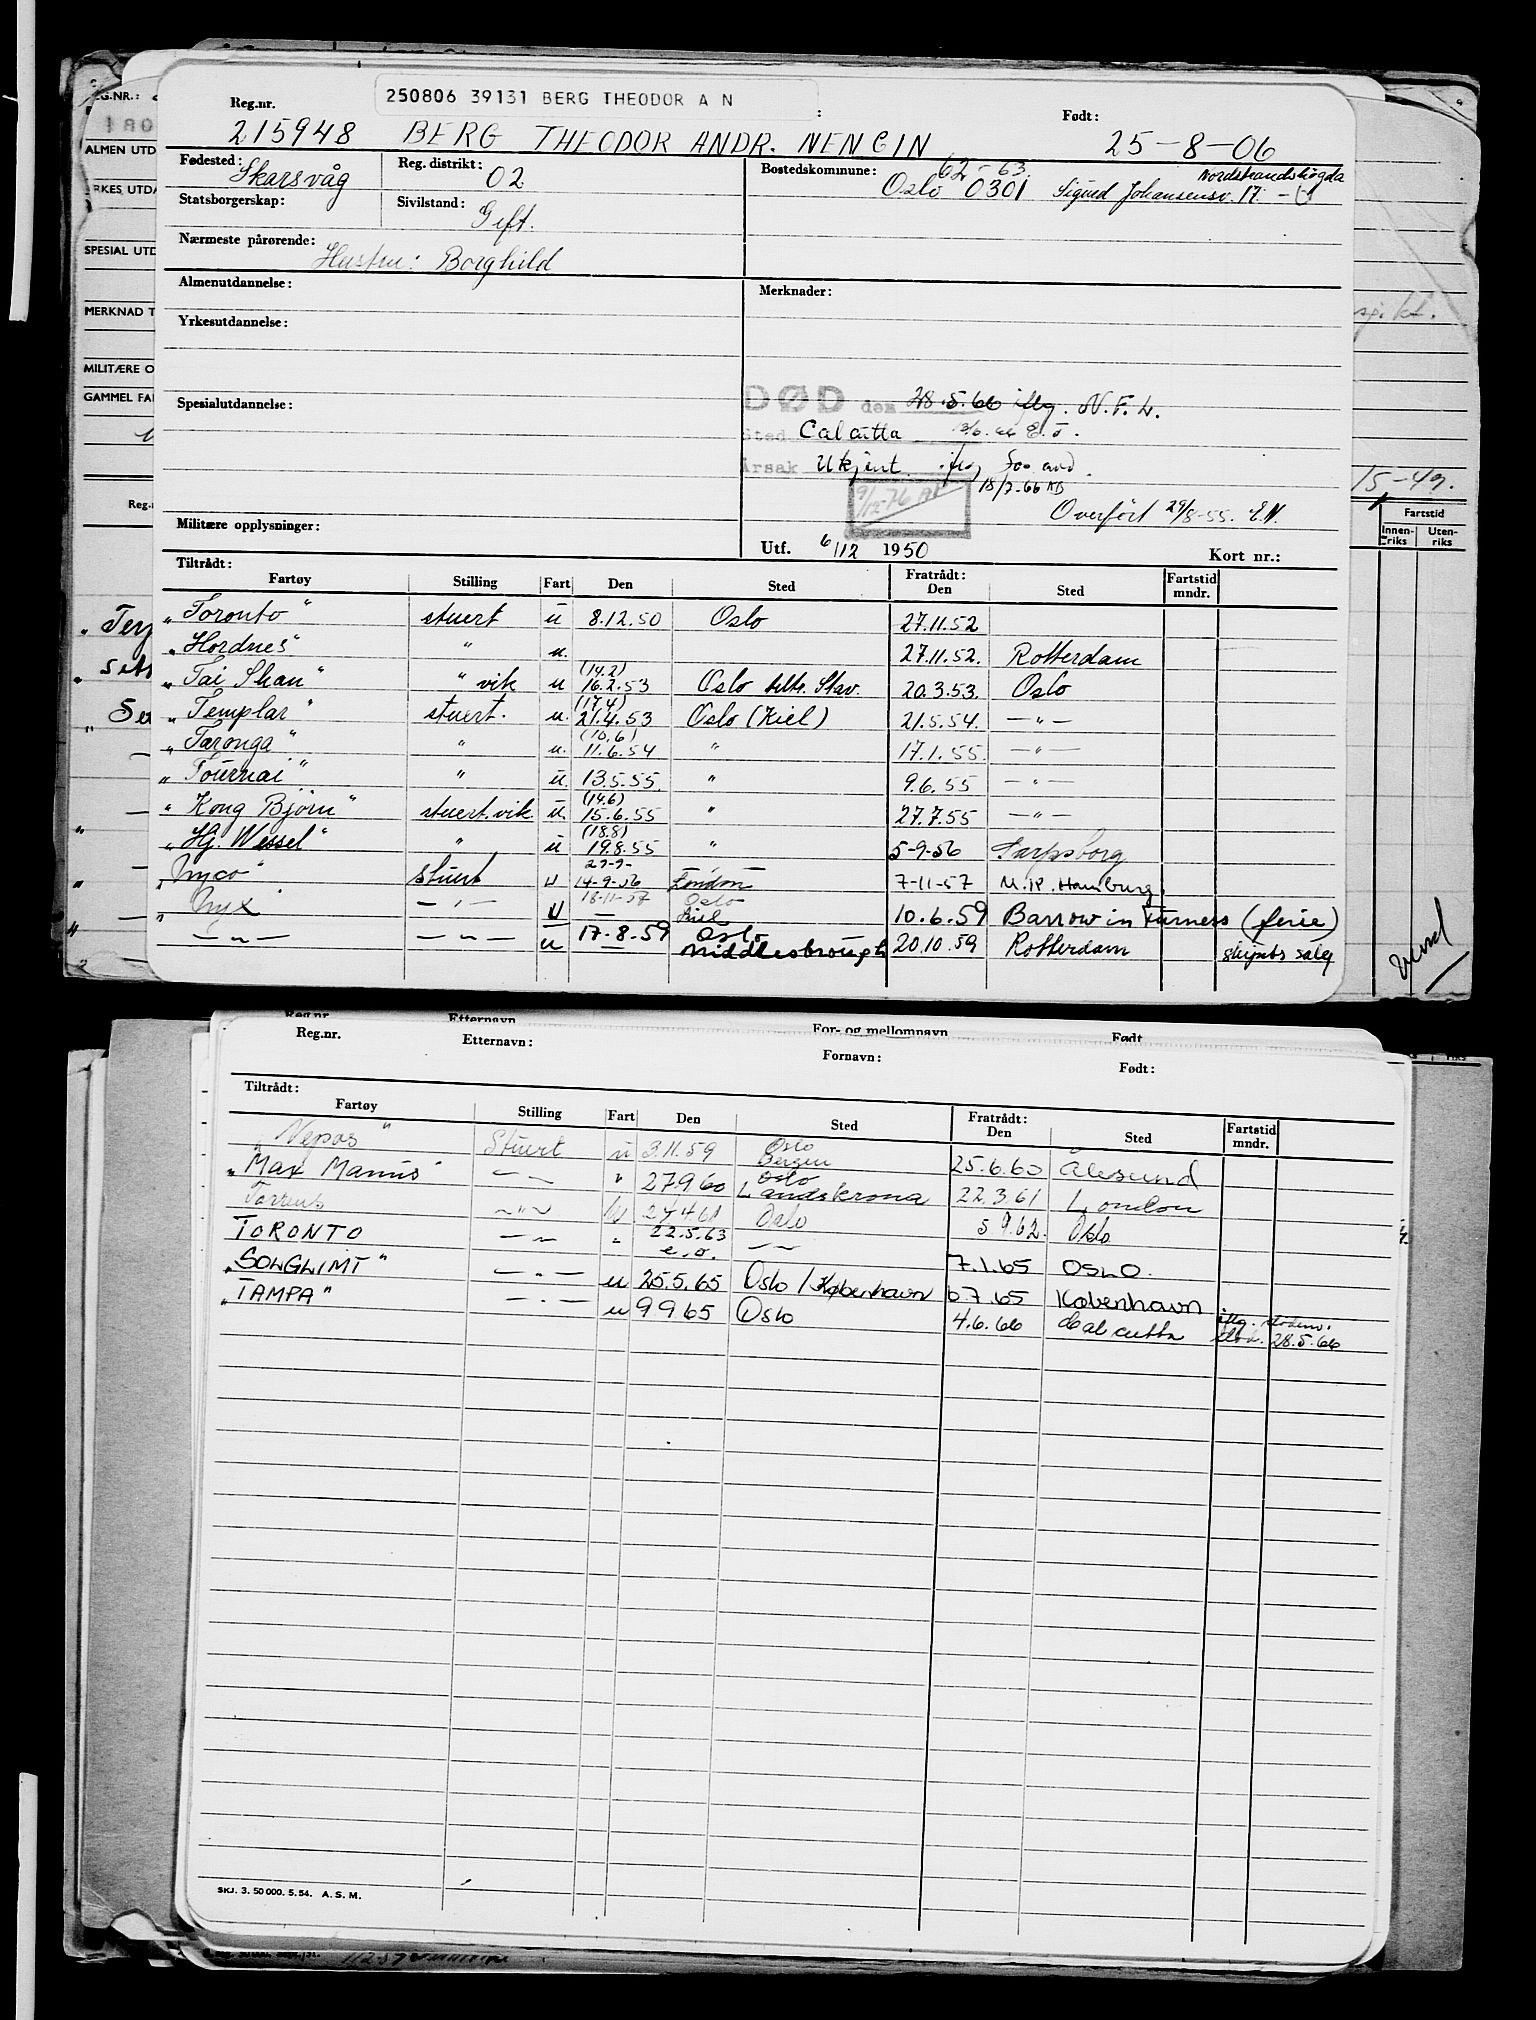 250806 39131 BERG THEODOR A N
Reg.nr. Født:
215948 BERG THEODOR ANDR. NENCIN 25-8-06
Fødested: Skarsvåg Reg. distrikt: 02 Bostedskommune: 62-63. Oslo 0301 Sigurd Johansensv. 17. Nordstrandshøgda
Statsborgerskap: Sivilstand: Gift.
Nærmeste pårørende: Hustru: Borghild
Almenutdannelse: Merknader:
Yrkesutdannelse:
Spesialutdannelse: DØD den 28.5.66 iflg. N.F.L.
Sted Calcutta E.J.
Årsak Ukjent iflg
18/7-66 KB
9/12-76
Overført 29/8-55. E.N.
Militære opplysninger:
Utf. 6/12 1950 Kort nr.:
Tiltrådt: Fratrådt: Fartstid
Fartøy Stilling Fart Den Sted Den Sted mndr.
"Toronto" stuert u 8.12.50 Oslo 27.11.52
"Hordnes" " u. 27.11.52. Rotterdam
"Tai Shan" " vik u (14.2) 16.2.53 Oslo beltr. Stav. 20.3.53. Oslo
"Templar" stuert. u. (17.4) 21.4.53 Oslo (Kiel) 21.5.54. -"-
"Taronga" " u. (10.6) 11.6.54 " 17.1.55. -"-
"Tournai" " u. 13.5.55. " 9.6.55 -"-
"Kong Bjørn" stuert.vik u. (14.6) 15.6.55 " 27.7.55 -"-
"Hj. Wessel" " u (18.8) 19.8.55 " 5-9-56 Sarpsborg
"Nyco" stuert u 14-9-56 London 7-11-57 U.K. Hamburg.
"Nyx" -"- u 18-11-57 Oslo Kiel 10.6.59 Barrow in Furness (ferie)
-"- -"- u 17-8-59 Oslo Middlesbrough 20.10.59 Rotterdam skipets salg
vend
EG.NR.:
ALMEN UTD
RKES UTDA
SPESIAL UTD
MERKNAD T
MILITÆRE O
GAMMEL FA
15-49.
Fartstid
Innen-riks Uten-riks
Reg.nr. Etternavn For- og mellomnavn Født
Reg.nr. Etternavn: Fornavn: Født:
Tiltrådt: Fratrådt: Fartstid
Fartøy Stilling Fart Den Sted Den Sted mndr.
"Nepos" Stuert u 3.11.59 Oslo Bergen 25.6.60 Ålesund
"Max Manus" -"- " 27.9.60 Oslo Landskrona 22.3.61 London
Torrens -"- u 24.4.61 Oslo 5.9.62. Oslo
TORONTO -"- " 22.5.63 e.o. -"- 7.1.65 OSLO.
"SOLGLIMT" -"- u 25.5.65 Oslo/København 6.7.65 København
"TAMPA" -"- u 9.9.65 Oslo 4.6.66 Calcutta iflg. død. 28.5.66
SKJ. 3. 50 000. 5. 54. A. S. M.